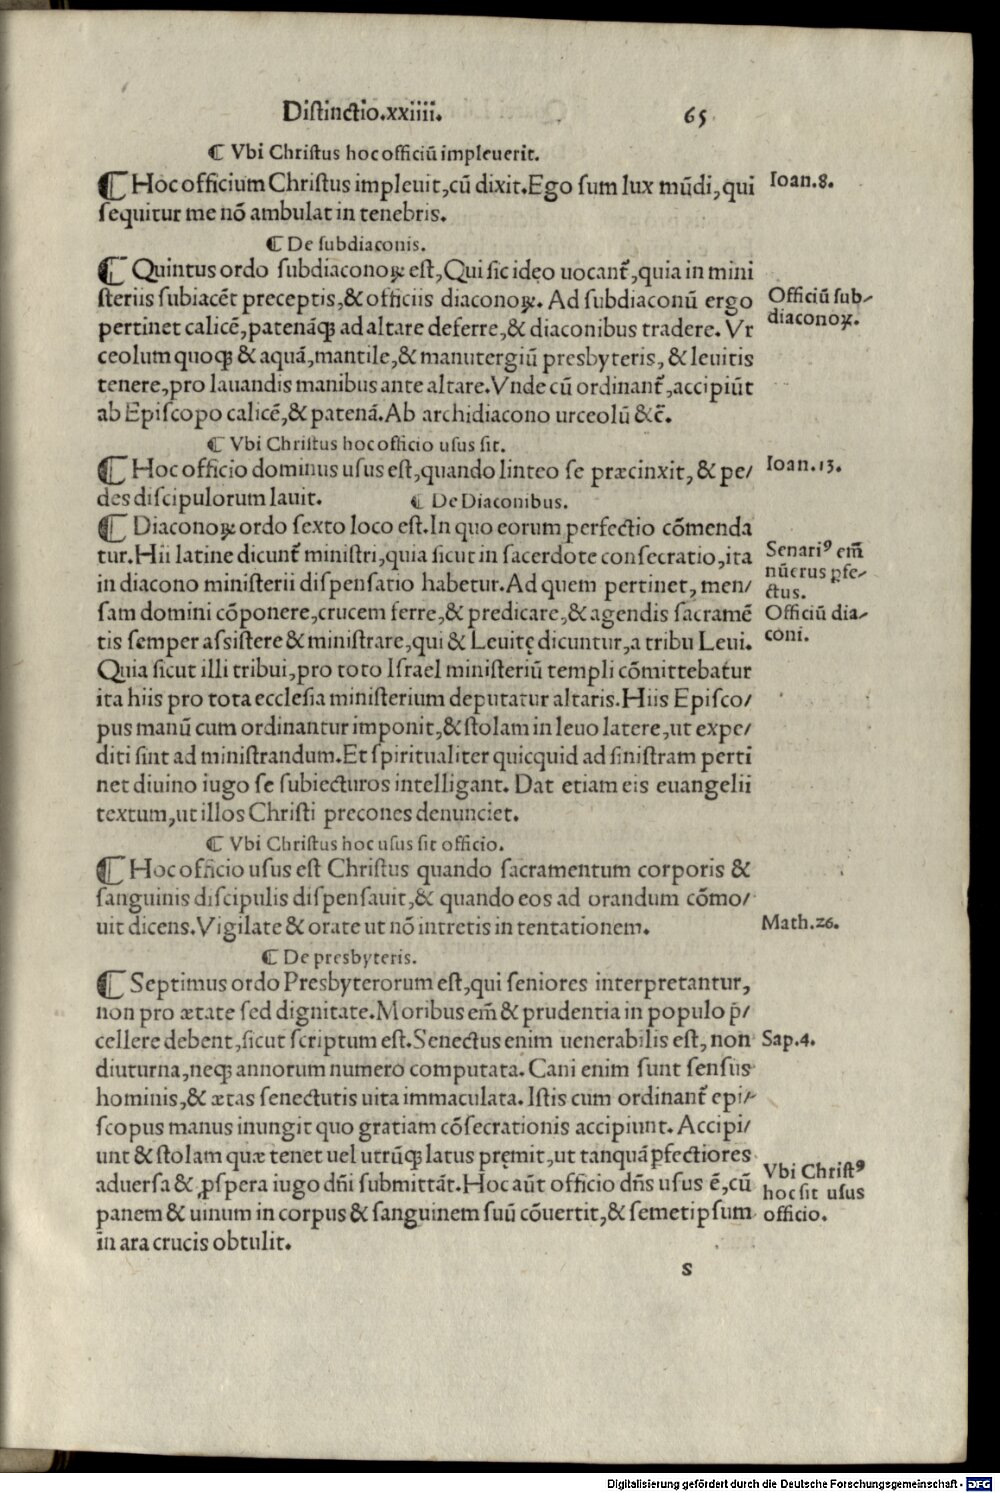 Distinctio.xxiiii. 65
¶ Vbi Christus hoc officiū impleuerit.
¶ Hoc officium Christus impleuit, cū dixit. Ego sum lux mūdi, qui
Ioan.8.
sequitur me nō ambulat in tenebris.
¶ De subdiaconis.
¶ Quintus ordo subdiaconoꝝ est, Qui sic ideo uocant̃, quia in mini
steriis subiacēt preceptis, & officiis diaconoꝝ. Ad subdiaconū ergo
Officiū sub-
diaconoꝝ.
pertinet calicē, patenāq̷ ad altare deferre, & diaconibus tradere. Vr
ceolum quoq̷ & aquā, mantile, & manutergiū presbyteris, & leuitis
tenere, pro lauandis manibus ante altare. Vnde cū ordinant̃, accipiūt
ab Episcopo calicē, & patenā. Ab archidiacono urceolū &c̄.
¶ Vbi Christus hoc officio usus sit.
¶ Hoc officio dominus usus est, quando linteo se præcinxit, & pe/
Ioan.13.
des discipulorum lauit. ¶ De Diaconibus.
¶ Diaconoꝝ ordo sexto loco est. In quo eorum perfectio cōmenda
tur. Hii latine dicunt̃ ministri, quia sicut in sacerdote consecratio, ita
Senariꝰ em̄
nūerus ꝑfe-
ctus.
in diacono ministerii dispensatio habetur. Ad quem pertinet, men/
sam domini cōponere, crucem ferre, & predicare, & agendis sacramē
Officiū dia-
coni.
tis semper assistere & ministrare, qui & Leuitę dicuntur, a tribu Leui.
Quia sicut illi tribui, pro toto Israel ministeriū templi cōmittebatur
ita hiis pro tota ecclesia ministerium deputatur altaris. Hiis Episco/
pus manū cum ordinantur imponit, & stolam in leuo latere, ut expe/
diti sint ad ministrandum. Et spiritualiter quicquid ad sinistram perti
net diuino iugo se subiecturos intelligant. Dat etiam eis euangelii
textum, ut illos Christi precones denunciet.
¶ Vbi Christus hoc usus sit officio.
¶ Hoc officio usus est Christus quando sacramentum corporis &
sanguinis discipulis dispensauit, & quando eos ad orandum cōmo/
uit dicens. Vigilate & orate ut nō intretis in tentationem.
Math.26.
¶ De presbyteris.
¶ Septimus ordo Presbyterorum est, qui seniores interpretantur,
non pro ætate sed dignitate. Moribus em̄ & prudentia in populo p̄/
cellere debent, sicut scriptum est. Senectus enim uenerabilis est, non
Sap.4.
diuturna, neq̷ annorum numero computata. Cani enim sunt sensus
hominis, & ætas senectutis uita immaculata. Istis cum ordinant̃ epi/
scopus manus inungit quo gratiam cōsecrationis accipiunt. Accipi/
unt & stolam quæ tenet uel utrūq̷ latus pręmit, ut tanquā ꝑfectiores
aduersa & ꝓspera iugo dñi submittāt. Hoc aūt officio dñs usus ē, cū
Vbi Christꝰ
hoc sit usus
officio.
panem & uinum in corpus & sanguinem suū cōuertit, & semetipsum
in ara crucis obtulit.
s
Digitalisierung gefördert durch die Deutsche Forschungsgemeinschaft - DFG